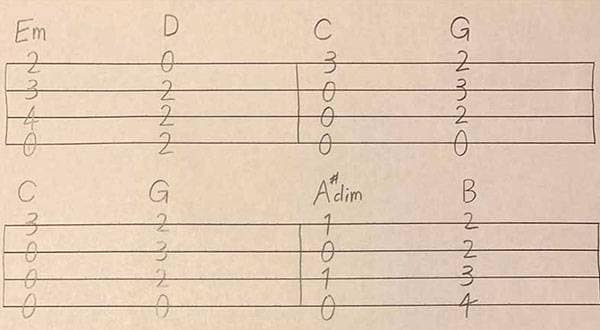 Em D C G
2 0 3 2
3 2 0 3
4 2 0 2
0 2 0 0
C G A#dim B
3 2 1 2
0 3 0 2
0 2 1 3
0 0 0 4